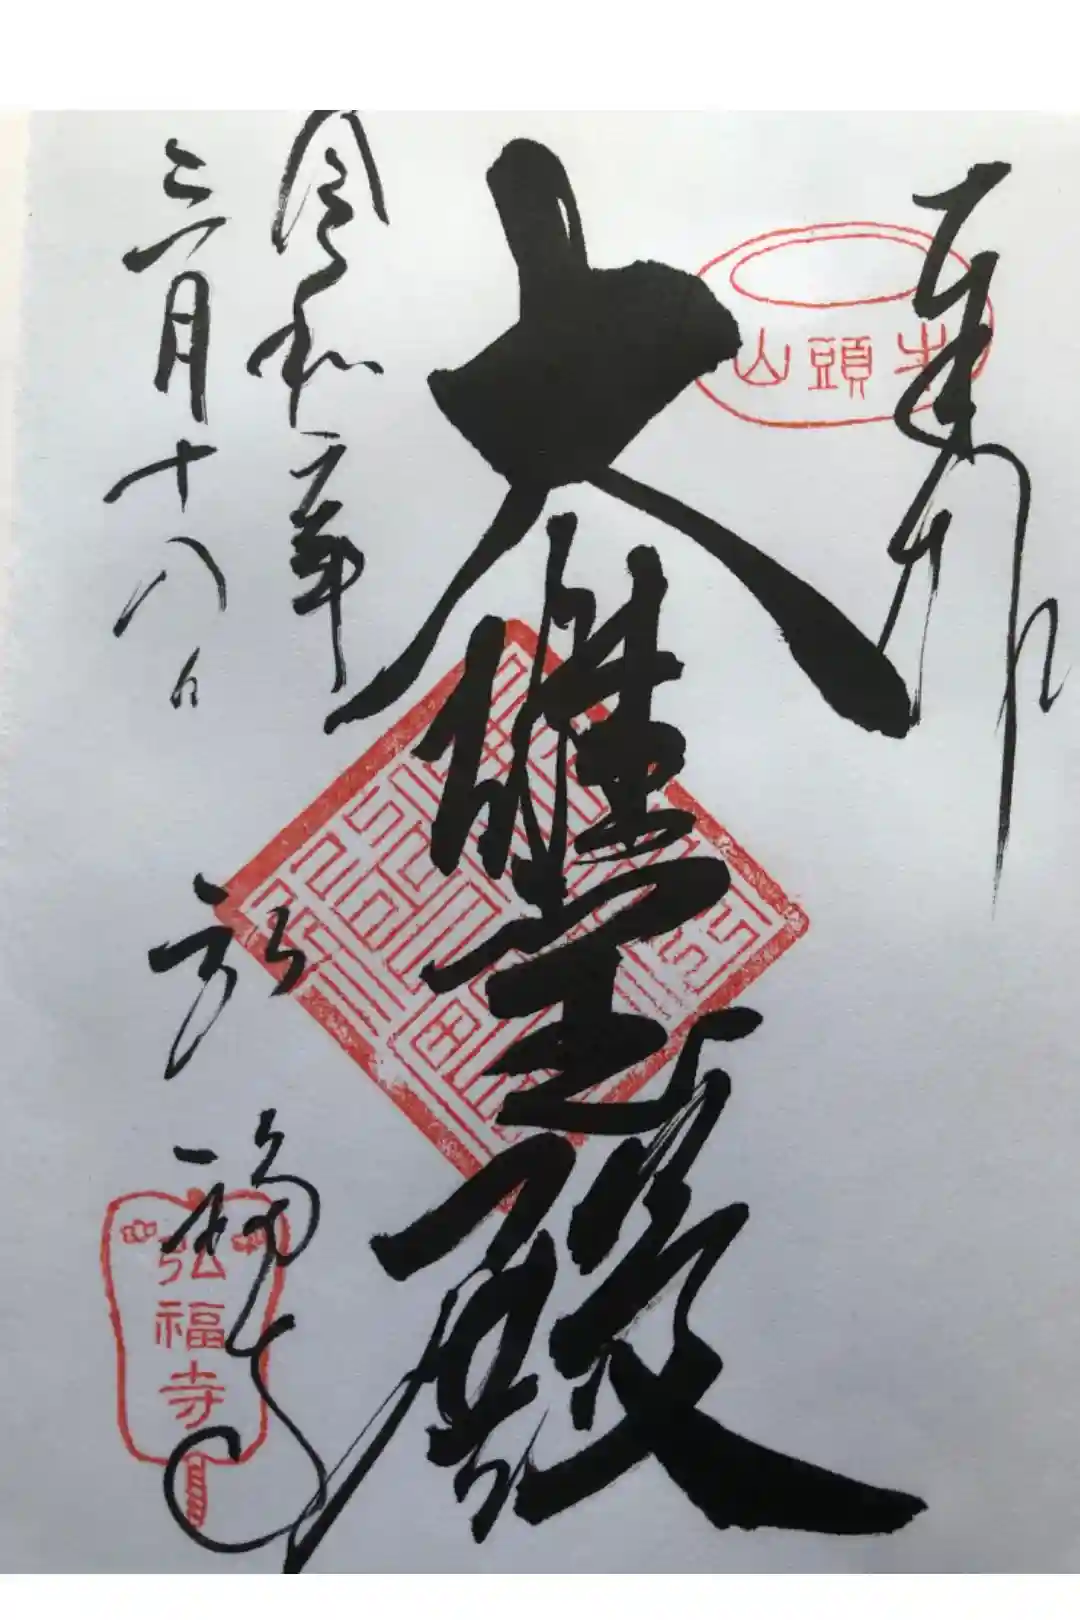 奉拝
牛頭山
大雄宝殿
令和六年
三月十八日
弘福寺
弘福寺